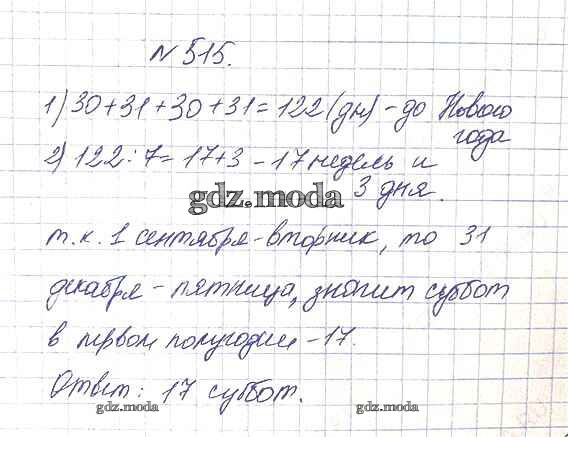 № 515.
1) 30+31+30+31=122 (дн) - до Нового
года
2) 122:7=17+3 - 17 недель и
3 дня.
gdz.moda
т.к. 1 сентября - вторник, то 31
декабря - пятница, значит суббот
в первом полугодии - 17.
Ответ: 17 суббот.
gdz.moda
gdz.moda